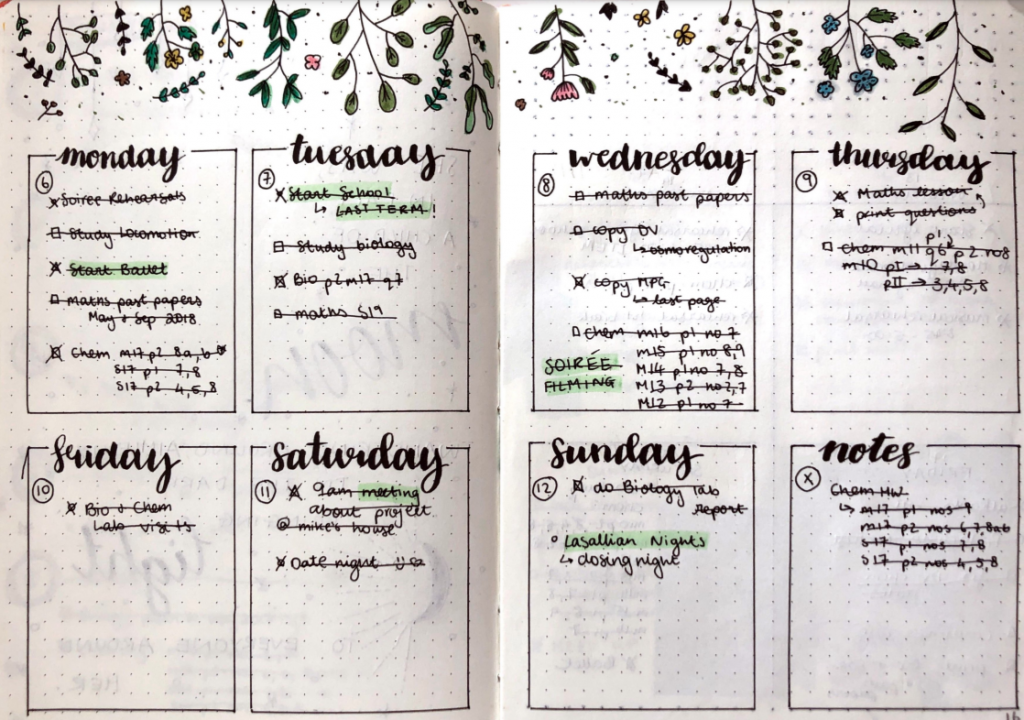 monday
6
Soiree Rehearsals
Study Locomotion
Start Ballet
maths past papers
May + Sep 2018
Chem M17 p2 8a,b
S17 p1 7,8
S17 p2 4,5,8
tuesday
7
Start School
↳ LAST TERM!
Study biology
Bio p2 m17 q7
maths S19
wednesday
8
maths past papers
copy DV
↳ osmoregulation
copy MPG
↳ last page
Chem m16 p1 no 7
M15 p1 no 8,9
M14 p1 no 7,8
M13 p2 no 2,7
M12 p1 no 7
SOIRÉE
FILMING
thursday
9
Maths lesson
print questions
p1
Chem m11 q6 p2 no8
m10 pI → 7,8
pII → 3,4,5,8
friday
10
Bio + Chem
Lab visits
saturday
11
9am meeting
about project
@ mike's house
Date night
sunday
12
do Biology lab
Report
Lasallian Nights
↳ closing night
notes
X
Chem HW
↳ M17 p1 nos 9
M17 p2 nos 6,7,8ab
S17 p1 nos 7,8
S17 p2 nos 4,5,8